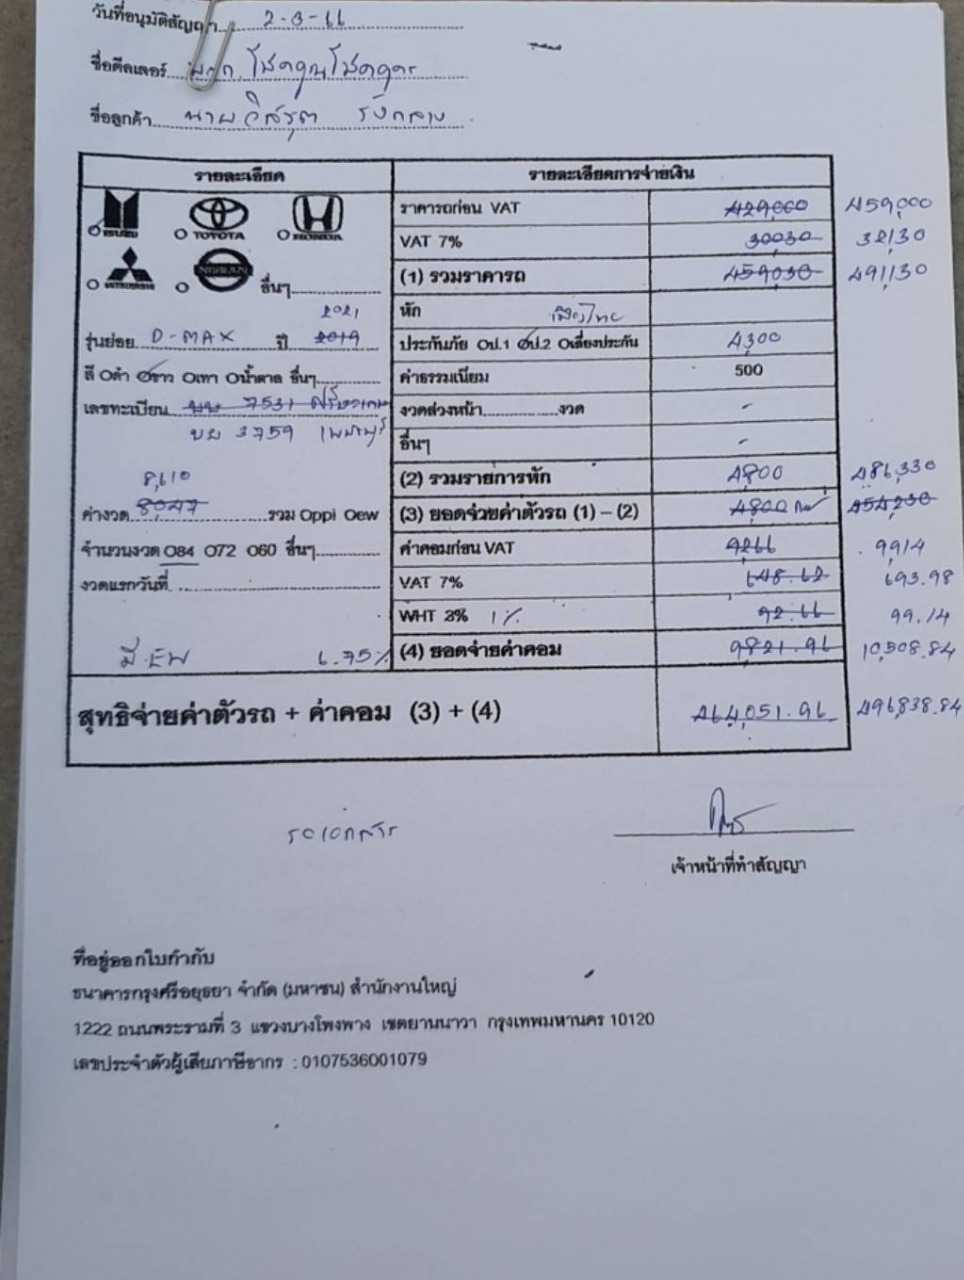 วันที่อนุมัติสัญญา 2-3-66
ชื่อดีลเลอร์ หจก. โชคคูณโชคถูกร
ชื่อลูกค้า นายวิสรุต รังกลาง
รายละเอียด
รายละเอียดการจ่ายเงิน
ISUZU O TOYOTA O HONDA
O MITSUBISHI O NISSAN อื่นๆ
2021
รุ่นย่อย D-MAX ปี 2019
สี Oดำ Oขาว Oเทา Oน้ำตาล อื่นๆ
เลขทะเบียน 7531 ศรีสะเกษ
บย 3759 เพชรบุรี
8,610
ค่างวด 8047 รวม Oppi Oew
จำนวนงวด O84 O72 O60 อื่นๆ
งวดแรกวันที่
มี.EW 6.75%
ราคารถก่อน VAT 429,000 459,000
VAT 7% 30030 32,130
(1) รวมราคารถ 459,030 491,130
หัก เมืองไทย
ประกันภัย Oป.1 Oป.2 Oเสี่ยงประกัน 4,300
ค่าธรรมเนียม 500
งวดล่วงหน้า งวด -
อื่นๆ -
(2) รวมรายการหัก 4,800 486,330
(3) ยอดจ่ายค่าตัวรถ (1) – (2) 4,800 454,230
ค่าคอมก่อน VAT 9266 9,914
VAT 7% 648.62 693.98
WHT 3% 1% 92.66 99.14
(4) ยอดจ่ายค่าคอม 9821.96 10,508.84
สุทธิจ่ายค่าตัวรถ + ค่าคอม (3) + (4) 464,051.96 496,838.84
รอเอกสาร
เจ้าหน้าที่ทำสัญญา
ที่อยู่ออกใบกำกับ
ธนาคารกรุงศรีอยุธยา จำกัด (มหาชน) สำนักงานใหญ่
1222 ถนนพระรามที่ 3 แขวงบางโพงพาง เขตยานนาวา กรุงเทพมหานคร 10120
เลขประจำตัวผู้เสียภาษีอากร : 0107536001079